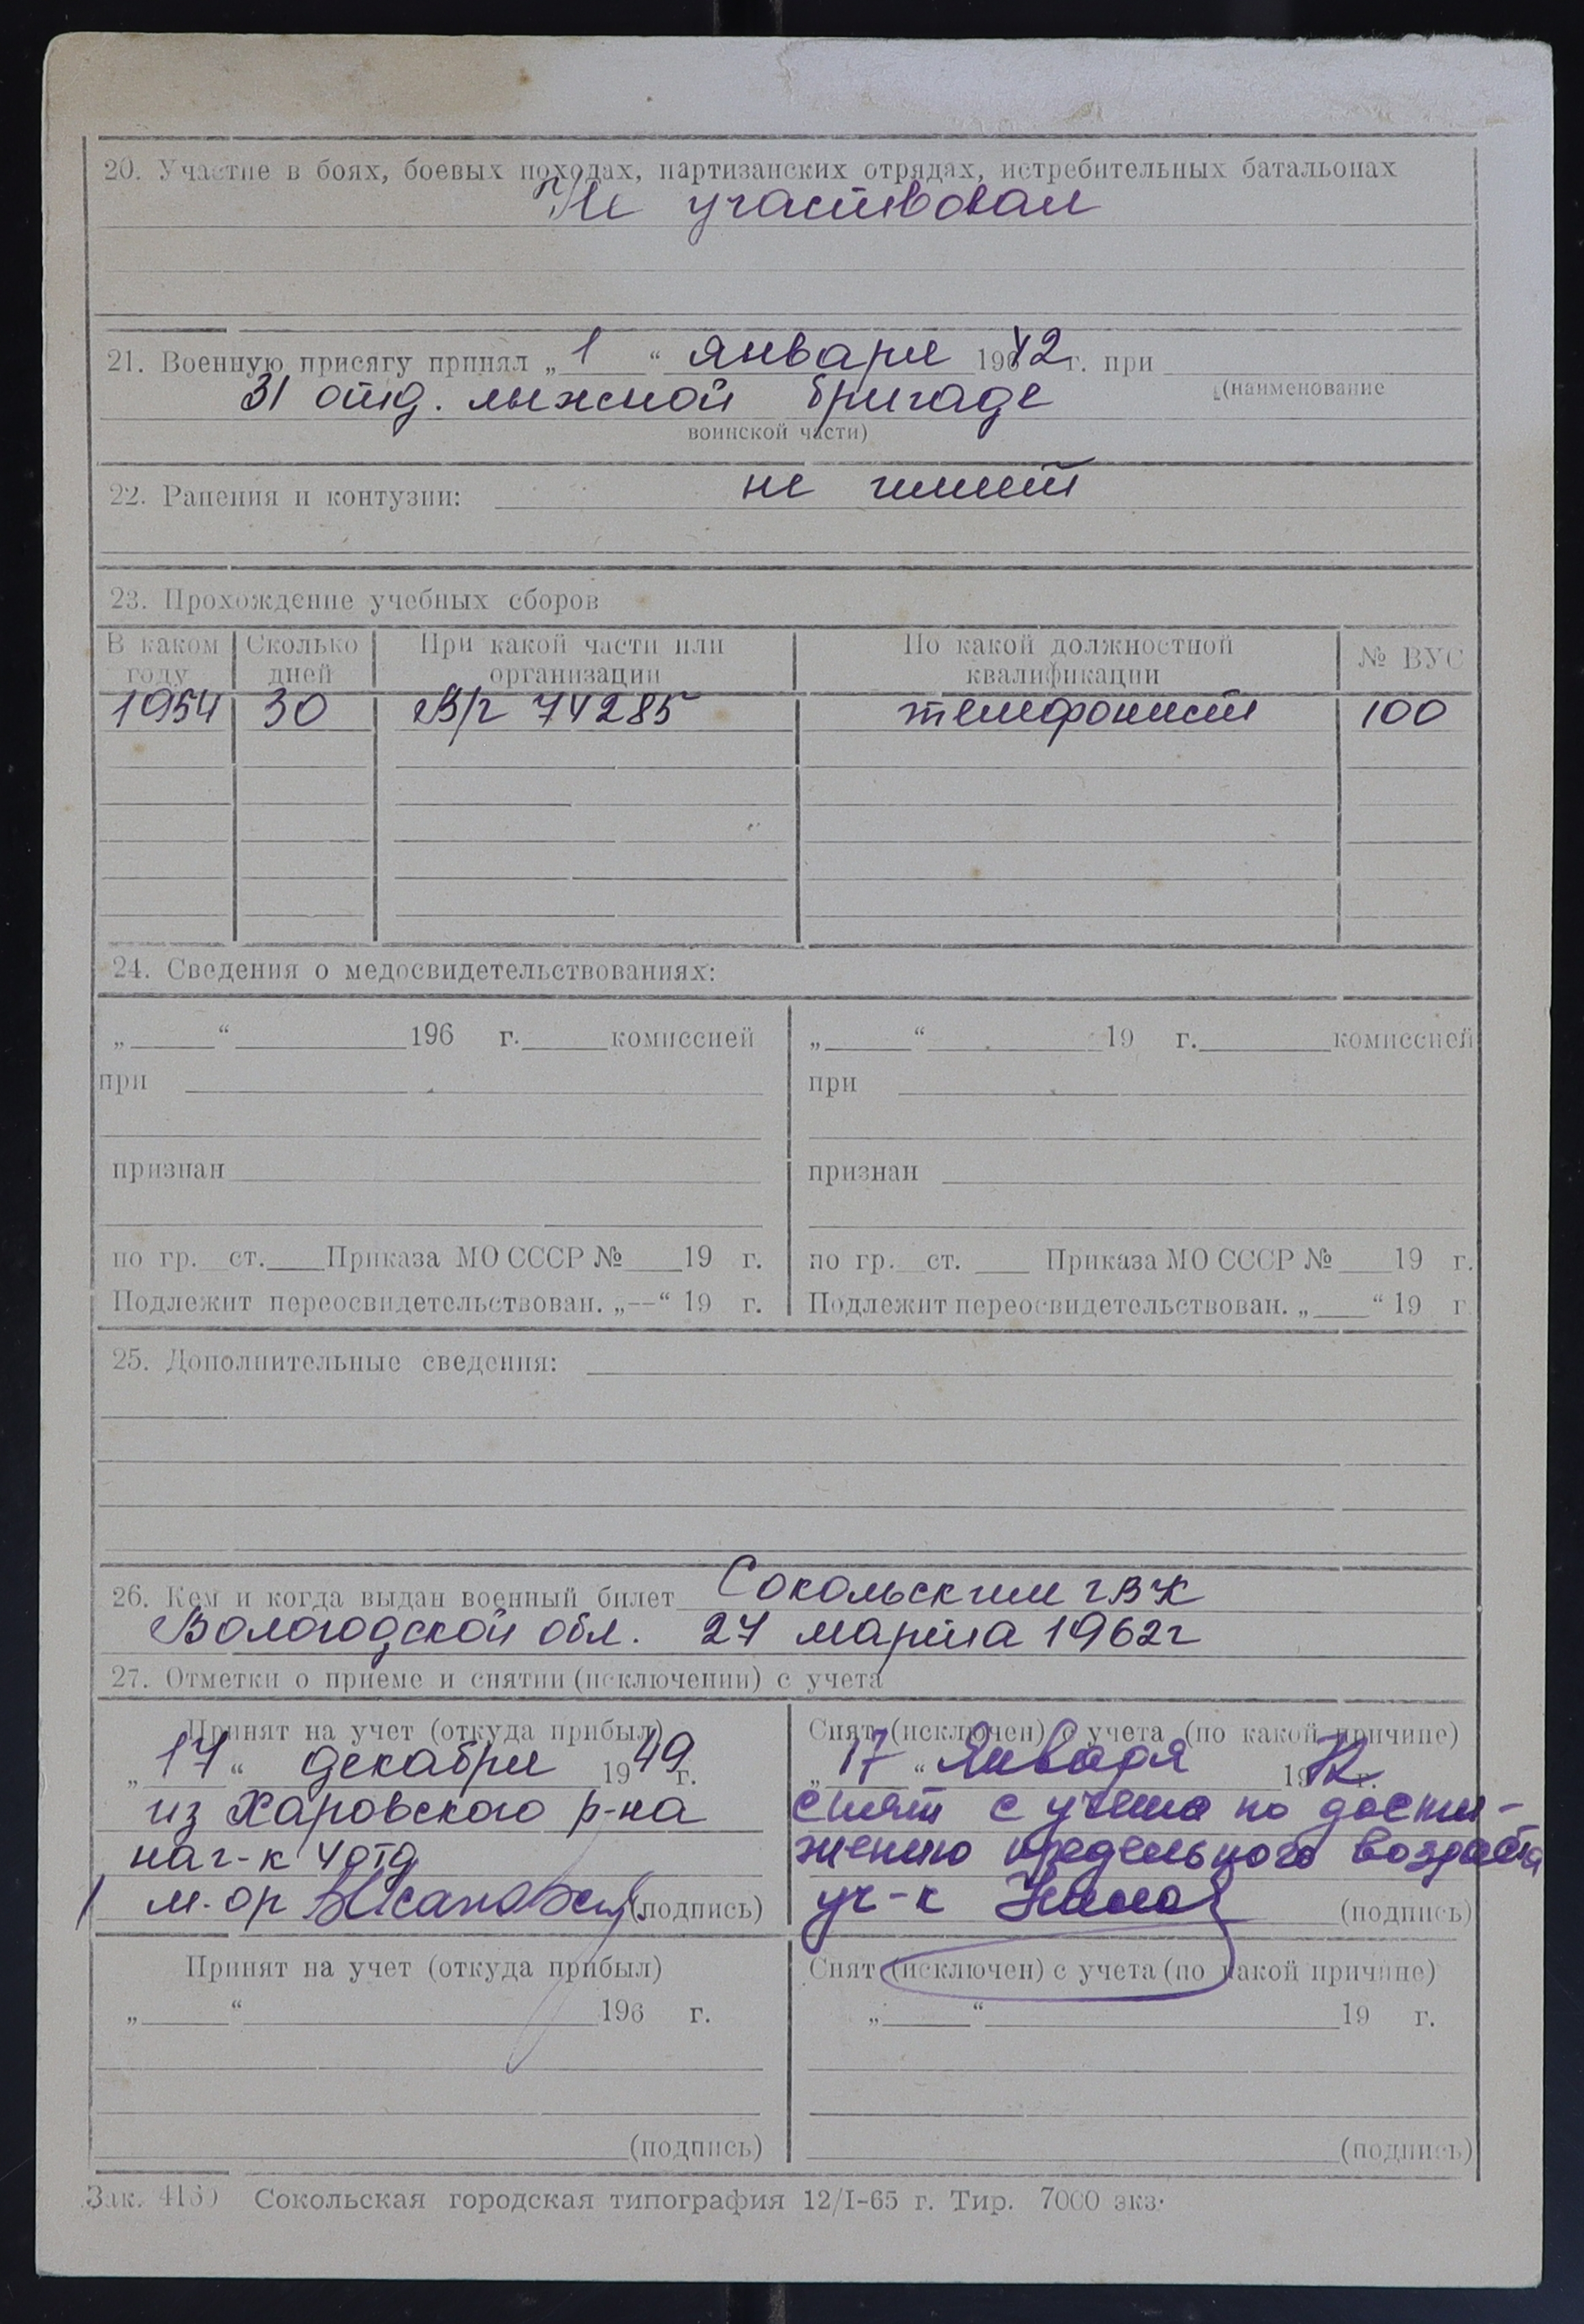 20. Участие в боях, боевых походах, партизанских отрядах, истребительных батальонах
Не участвовал
21. Военную присягу принял „ 1 “ января 1942 г. при
31 отд. лыжной бригаде (наименование
воинской части)
22. Ранения и контузии: не имеет
23. Прохождение учебных сборов
В каком году Сколько дней При какой части или организации По какой должностной квалификации № ВУС
1954 30 В/г 74285 телефонист 100
24. Сведения о медосвидетельствованиях:
„ “ 196 г. комиссией „ “ 19 г. комиссией
при при
признан признан
по гр. ст. Приказа МО СССР № 19 г. по гр. ст. Приказа МО СССР № 19 г.
Подлежит переосвидетельствован. „--“ 19 г. Подлежит переосвидетельствован. „ “ 19 г
25. Дополнительные сведения:
26. Кем и когда выдан военный билет Сокольским ГВК
Вологодской обл. 27 марта 1962г
27. Отметки о приеме и снятии (исключении) с учета
Принят на учет (откуда прибыл)
„ 17 “ декабря 1949 г.
из Харовского р-на
нач-к 4 отд
м-ор (подпись)
Снят (исключен) с учета (по какой причине)
„ 17 “ Января 1972 г.
снят с учета по дости-
жению предельного возраста
уч-к (подпись)
Принят на учет (откуда прибыл) Снят (исключен) с учета (по какой причине)
„ “ 196 г. „ “ 19 г.
(подпись) (подпись)
Зак. Сокольская городская типография 12/I-65 г. Тир. 7000 экз.